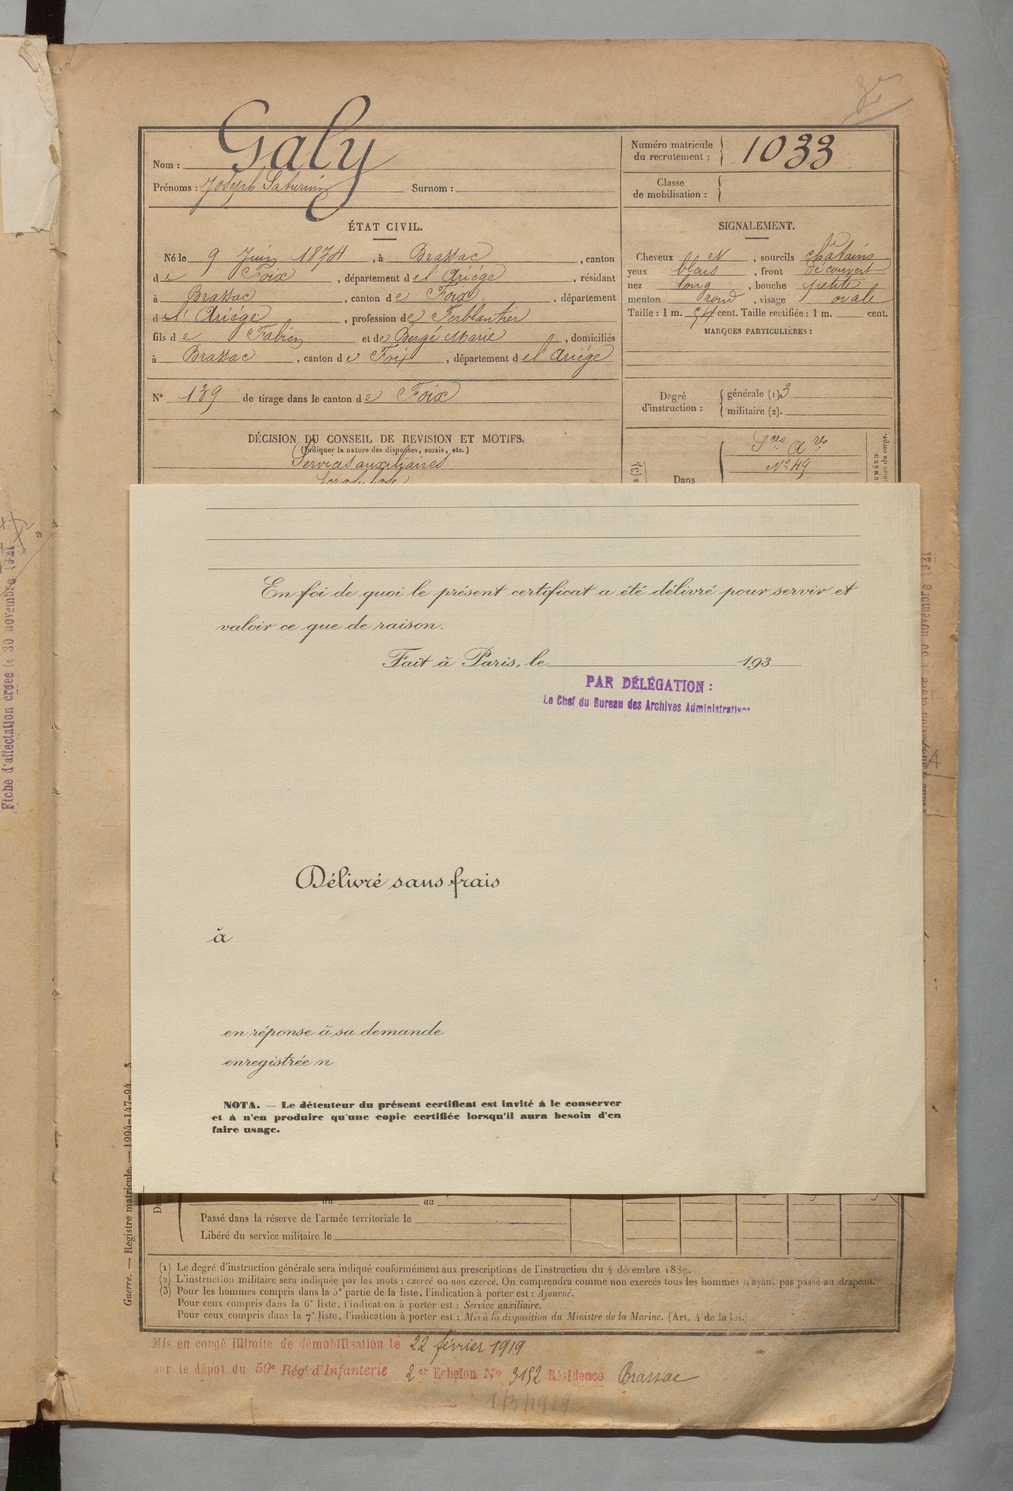 Galy
Nom :
Prénoms : Joseph Saturnin Surnom :
Numéro matricule
du recrutement : 1033
Classe
de mobilisation :
ÉTAT CIVIL.
Né le 9 Juin 1874, à Brassac, canton
de Foix, département de l'Ariége, résidant
à Brassac, canton de Foix, département
de l'Ariége, profession de Ferblantier
fils de Fabien et de Bergé Marie, domiciliés
à Brassac, canton de Foix, département de l'Ariége
N° 139 de tirage dans le canton de Foix
SIGNALEMENT.
Cheveux et sourcils châtains
yeux bleus, front découvert
nez long, bouche petite
menton rond, visage ovale
Taille : 1 m. cent. Taille rectifiée : 1 m. cent.
MARQUES PARTICULIÈRES :
Degré
d'instruction :
générale (1). 3
militaire (2).
DÉCISION DU CONSEIL DE REVISION ET MOTIFS.
(Indiquer la nature des dispenses, sursis, etc.)
Services auxiliaires
Sces Ares
N° 49
Dans
En foi de quoi le présent certificat a été délivré pour servir et
valoir ce que de raison.
Fait à Paris, le 193
PAR DÉLÉGATION :
Le Chef du Bureau des Archives Administratives
Délivré sans frais
à
en réponse à sa demande
enregistrée n
NOTA. — Le détenteur du présent certificat est invité à le conserver
et à n'en produire qu'une copie certifiée lorsqu'il aura besoin d'en
faire usage.
au
Passé dans la réserve de l'armée territoriale le
Libéré du service militaire le
(1) Le degré d'instruction générale sera indiqué conformément aux prescriptions de l'instruction du 4 décembre 1889.
(2) L'instruction militaire sera indiquée par les mots : exercé ou non exercé. On comprendra comme non exercés tous les hommes n'ayant pas passé au drapeau.
(3) Pour les hommes compris dans la 5e partie de la liste, l'indication à porter est : Ajourné.
Pour ceux compris dans la 6e liste, l'indication à porter est : Service auxiliaire.
Pour ceux compris dans la 7e liste, l'indication à porter est : Mis à la disposition du Ministre de la Marine. (Art. 4 de la loi.)
Mis en congé illimité de démobilisation le 22 février 1919
par le dépôt du 59e Régt d'Infanterie 2e Echelon No 3152 Résidence Brassac
Guerre. — Registre matricule. — 1094-147-94
Fiche d'affectation créée le 30 novembre 1921